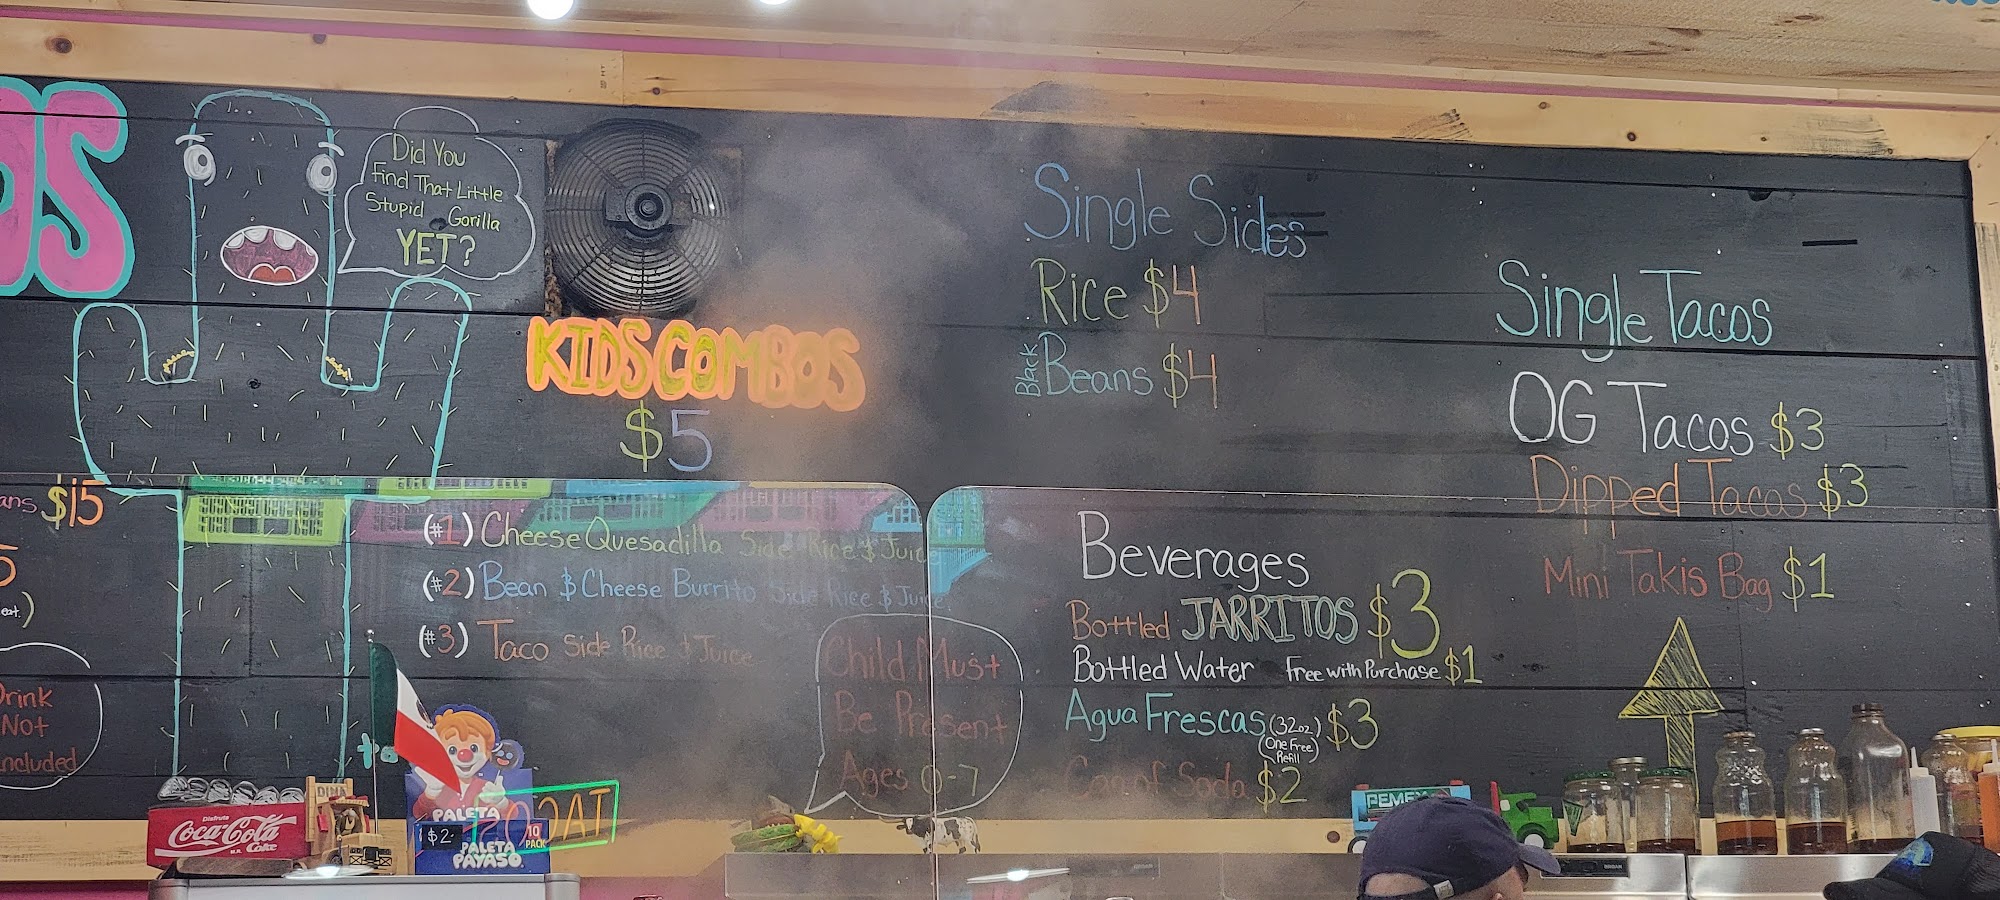 OS
Did You
Find That Little
Stupid Gorilla
YET?
KIDS COMBOS
$5
ans $15
5
eat.)
Drink
Not
included
(#1) Cheese Quesadilla Side Rice & Juice
(#2) Bean & Cheese Burrito Side Rice & Juice
(#3) Taco Side Rice & Juice
Child Must
Be Present
Ages 0-7
Single Sides
Rice $4
Black Beans $4
Beverages
Bottled JARRITOS $3
Bottled Water Free with Purchase $1
Agua Frescas (32oz) $3
(One Free Refill)
Can of Soda $2
Single Tacos
OG Tacos $3
Dipped Tacos $3
Mini Takis Bag $1
Disfrute
Coca-Cola
Coke
PALETA
$2
10
PACK
PALETA
PAYASO
PEMEX